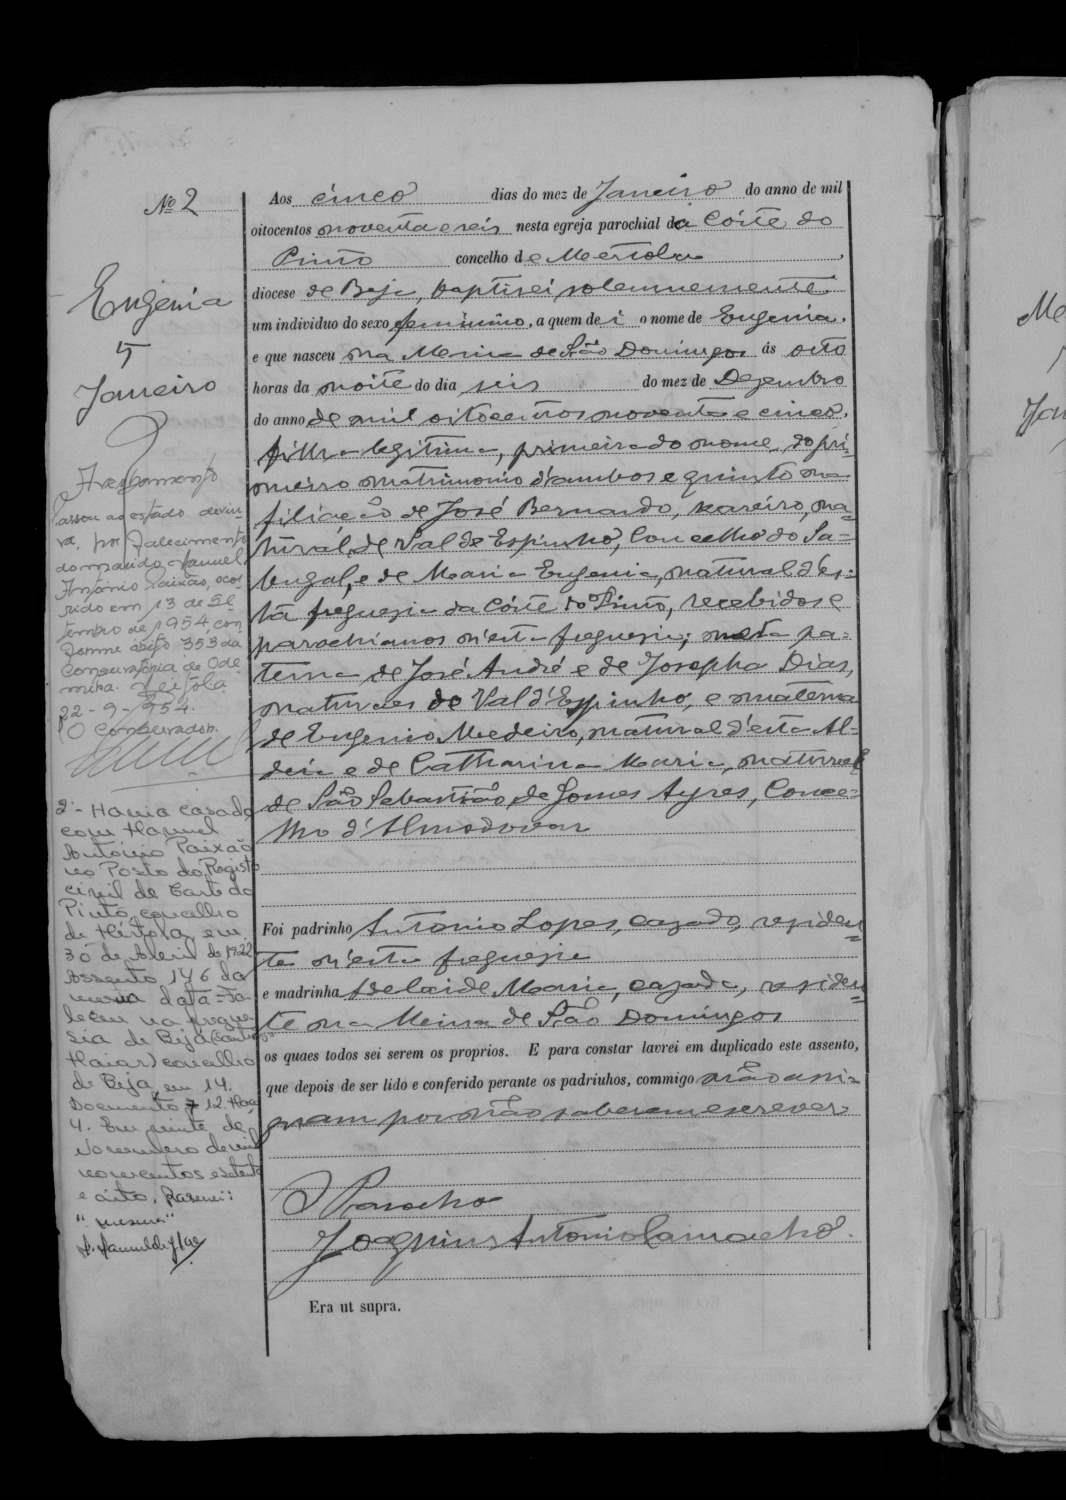 Nº 2
Eugenia
5
Janeiro
Averbamento
passou ao estado de viu-
va, por falecimento
do marido, Manuel
António Paixão, ocor-
rido em 13 de Se-
tembro de 1954, con-
forme assento 353 da
Conservatória de Ode-
mira.
22-9-954.
O Conservador,
2º - Havia casado
com Manuel
António Paixão
no Posto do Registo
civil de Corte do
Pinto, concelho
de Mértola, em
30 de Abril de 1922
Assento 146 da
mesma data = Fa-
leceu na fregue-
sia de Beja (Santiago
Maior) concelho
de Beja, em 14.
Documento 7 12. Maço
4. Em vinte de
Novembro de mil
novecentos e setenta
e oito. Rasurei:
Aos cinco dias do mez de Janeiro do anno de mil
oitocentos noventa e seis nesta egreja parochial da Córte do
Pinto concelho de Mertola
diocese de Beja, baptisei solemnemente
um individuo do sexo feminino, a quem dei o nome de Eugenia.
e que nasceu na Mina de São Domingos ás oito
horas da noite do dia seis do mez de Dezembro
do anno de mil oitocentos noventa e cinco.
filha legitima, primeira do nome, do pri-
meiro matrimonio d'ambos e quinto na
filiação de José Bernardo, na-
tural de Val de Espinho, Concelho do Sa-
bugal, e de Maria Eugenia, natural d'es-
ta freguezia da Córte do Pinto, recebidos e
parochianos n'esta freguezia; neta pa-
terna de José André e de Josepha Dias,
naturaes de Val d'Espinho, e materna
de Eugenio Medeiro, natural d'esta Al-
deia e de Catharina Maria, natural
de São Sebastião de Gomes Ayres, Conce-
lho d'Almodovar
Foi padrinho Antonio Lopes, cazado, residen-
te n'esta freguezia
e madrinha Adelaide Maria, cazada, residen-
te na Mina de São Domingos
os quaes todos sei serem os proprios. E para constar lavrei em duplicado este assento,
que depois de ser lido e conferido perante os padrinhos, commigo não assi-
gnam por não saberem escrever.
O Parocho
Joaquim Antonio Camacho.
Era ut supra.
Me
Jan